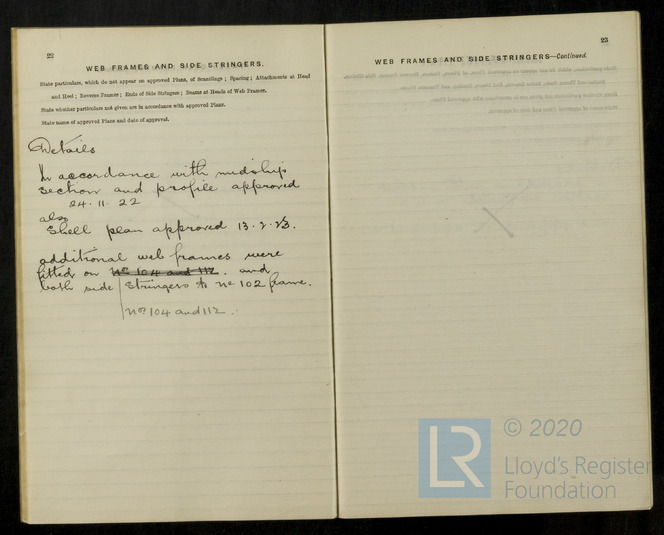 22
WEB FRAMES AND SIDE STRINGERS.
State particulars, which do not appear on approved Plans, of Scantlings; Spacing; Attachments at Head
and Heel; Reverse Frames; Ends of Side Stringers; Beams at Heads of Web Frames.
State whether particulars not given are in accordance with approved Plans.
State name of approved Plans and date of approval.
Details
In accordance with midship
section and profile approved
24.11.22
also
Shell plan approved 13.2.23.
additional web frames were
fitted on Nos 104 and 112. and
both side stringers to No 102 frame.
Nos 104 and 112.
23
WEB FRAMES AND SIDE STRINGERS—Continued.
LR
© 2020
Lloyd's Register
Foundation